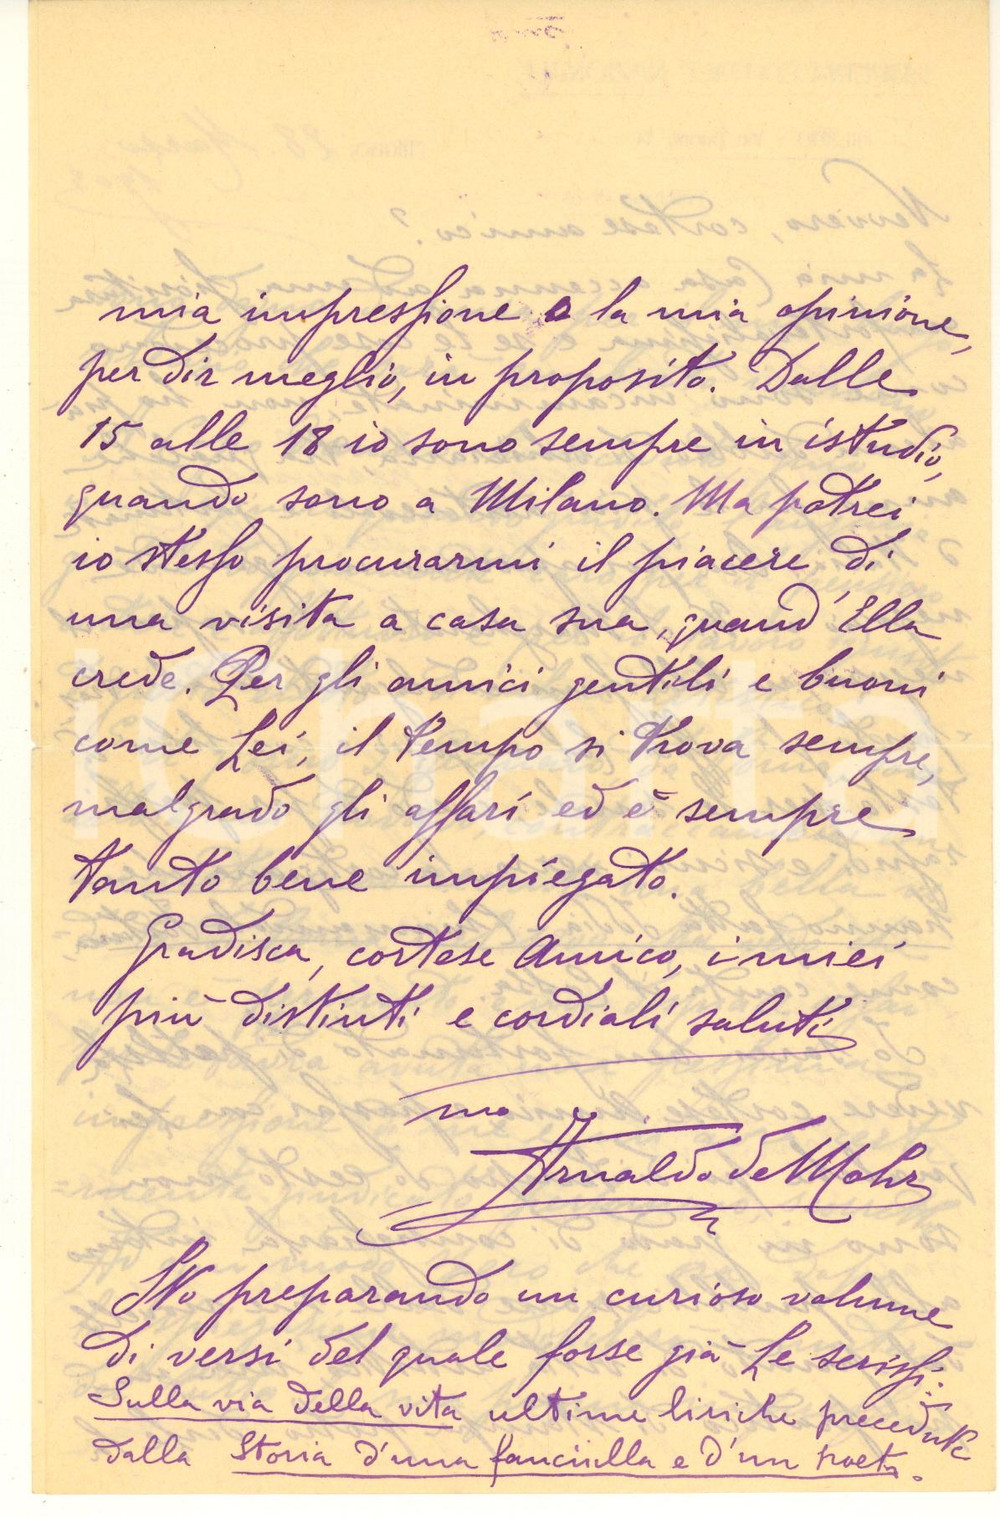 mia impressione o la mia opinione,
per dir meglio, in proposito. Dalle
15 alle 18 io sono sempre in istudio,
quando sono a Milano. Ma potrei
io stesso procurarmi il piacere di
una visita a casa sua, quand'Ella
crede. Per gli amici gentili e buoni
come Lei, il tempo si trova sempre,
malgrado gli affari ed è sempre
tanto bene impiegato.
Gradisca, cortese Amico, i miei
più distinti e cordiali saluti
suo
Arnaldo de Mohr
Sto preparando un curioso volume
di versi del quale forse già Le scrissi:
Sulla via della vita ultime liriche precedute
dalla Storia d'una fanciulla e d'un poeta.